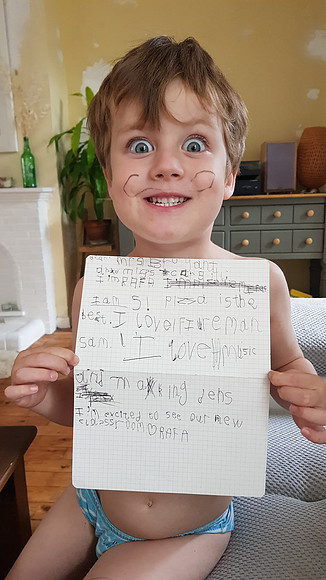 miss
and miss
I'm RAFA
I am 5! is the
best. I love FIreman
sam! I love
and making dens
I'm excited to see our new
classsroom♡RAFA